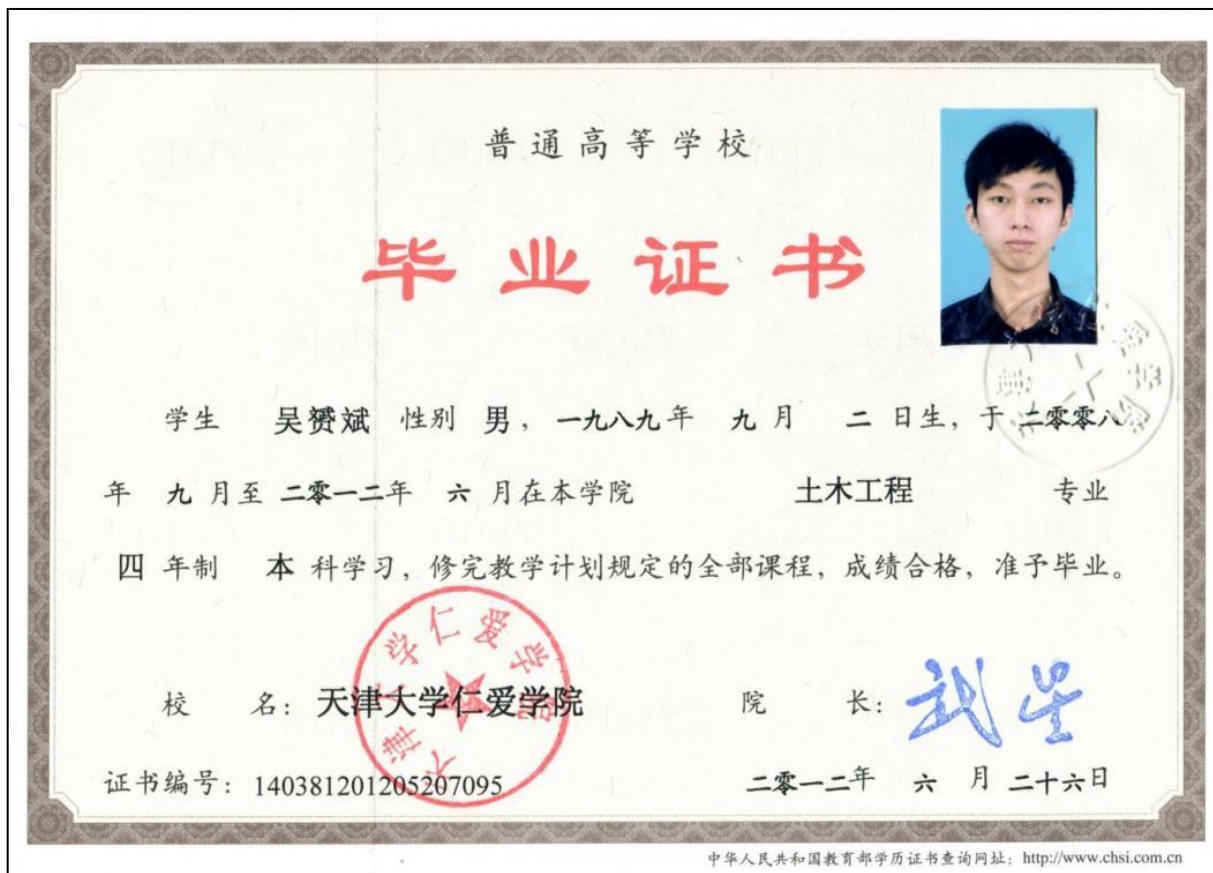 普通高等学校
毕业证书
学生 吴赟斌 性别 男，一九八九年 九 月 二 日生，于 二零零八
年 九 月至 二零一二年 六 月在本学院 土木工程 专业
四 年制 本 科学习，修完教学计划规定的全部课程，成绩合格，准予毕业。
天津大学仁爱学院
校 名：天津大学仁爱学院 院 长：
证书编号：140381201205207095 二零一二年 六 月 二十六日
中华人民共和国教育部学历证书查询网址：http://www.chsi.com.cn